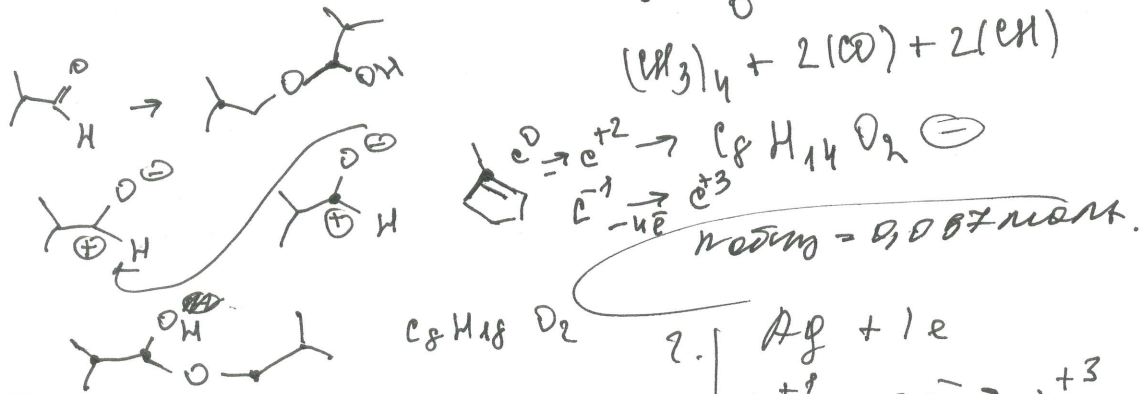 (CH₃)₄ + 2(CO) + 2(CH)
O
H
→
O
OH
C⁰ → C⁺² → C₈H₁₄O₂ ⊖
C⁻¹ → C⁺³
-4ē
O ⊖
⊕ H
O ⊖
⊕ H
= 0,087 моль.
OH
O
C₈H₁₈O₂
2. Ag + 1e
+3